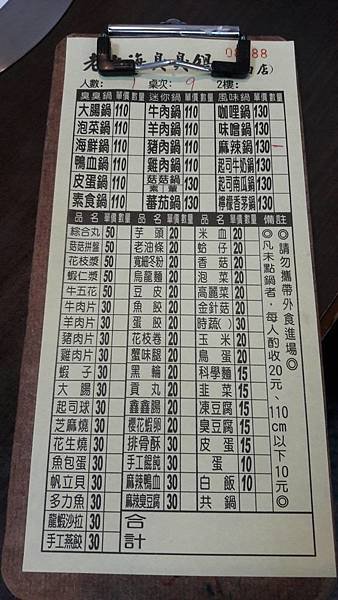 老上海臭臭鍋 店)
08688
人數: 1 桌次: 9 2樓:
臭臭鍋 單價 數量 迷你鍋 單價 數量 風味鍋 單價 數量
大腸鍋 110 牛肉鍋 110 咖哩鍋 130
泡菜鍋 110 羊肉鍋 110 味噌鍋 130
海鮮鍋 110 豬肉鍋 110 麻辣鍋 130
鴨血鍋 110 雞肉鍋 110 起司牛奶鍋 130
皮蛋鍋 110 菇菇鍋 素 葷 110 起司南瓜鍋 130
素食鍋 110 蕃茄鍋 130 檸檬香茅鍋 130
品名 單價 數量 品名 單價 數量 品名 單價 數量 備註
綜合丸 50 芋頭 20 米血 20
菇菇拼盤 50 老油條 20 蛤仔 20
花枝漿 50 寬細冬粉 20 香菇 20
蝦仁漿 50 烏龍麵 20 泡菜 20
牛五花 50 豆皮 20 高麗菜 20
牛肉片 30 魚餃 20 金針菇 20
羊肉片 30 蛋餃 20 時蔬( ) 30
豬肉片 30 花枝卷 20 玉米 20
雞肉片 30 蟹味腿 20 鳥蛋 20
蝦子 30 黑輪 20 科學麵 15
大腸 30 貢丸 20 韭菜 15
起司球 30 鑫鑫腸 20 凍豆腐 15
芝麻燒 30 櫻花蝦卵 20 臭豆腐 15
花生燒 30 排骨酥 30 皮蛋 15
魚包蛋 30 手工餛飩 30 蛋 10
帆立貝 30 麻辣鴨血 30 白飯 10
多力魚 30 麻辣臭豆腐 30 共鍋
龍蝦沙拉 30 合計
手工燕餃 30
◎請勿攜帶外食進場◎
◎凡未點鍋者,每人酌收20元、110cm以下10元。◎